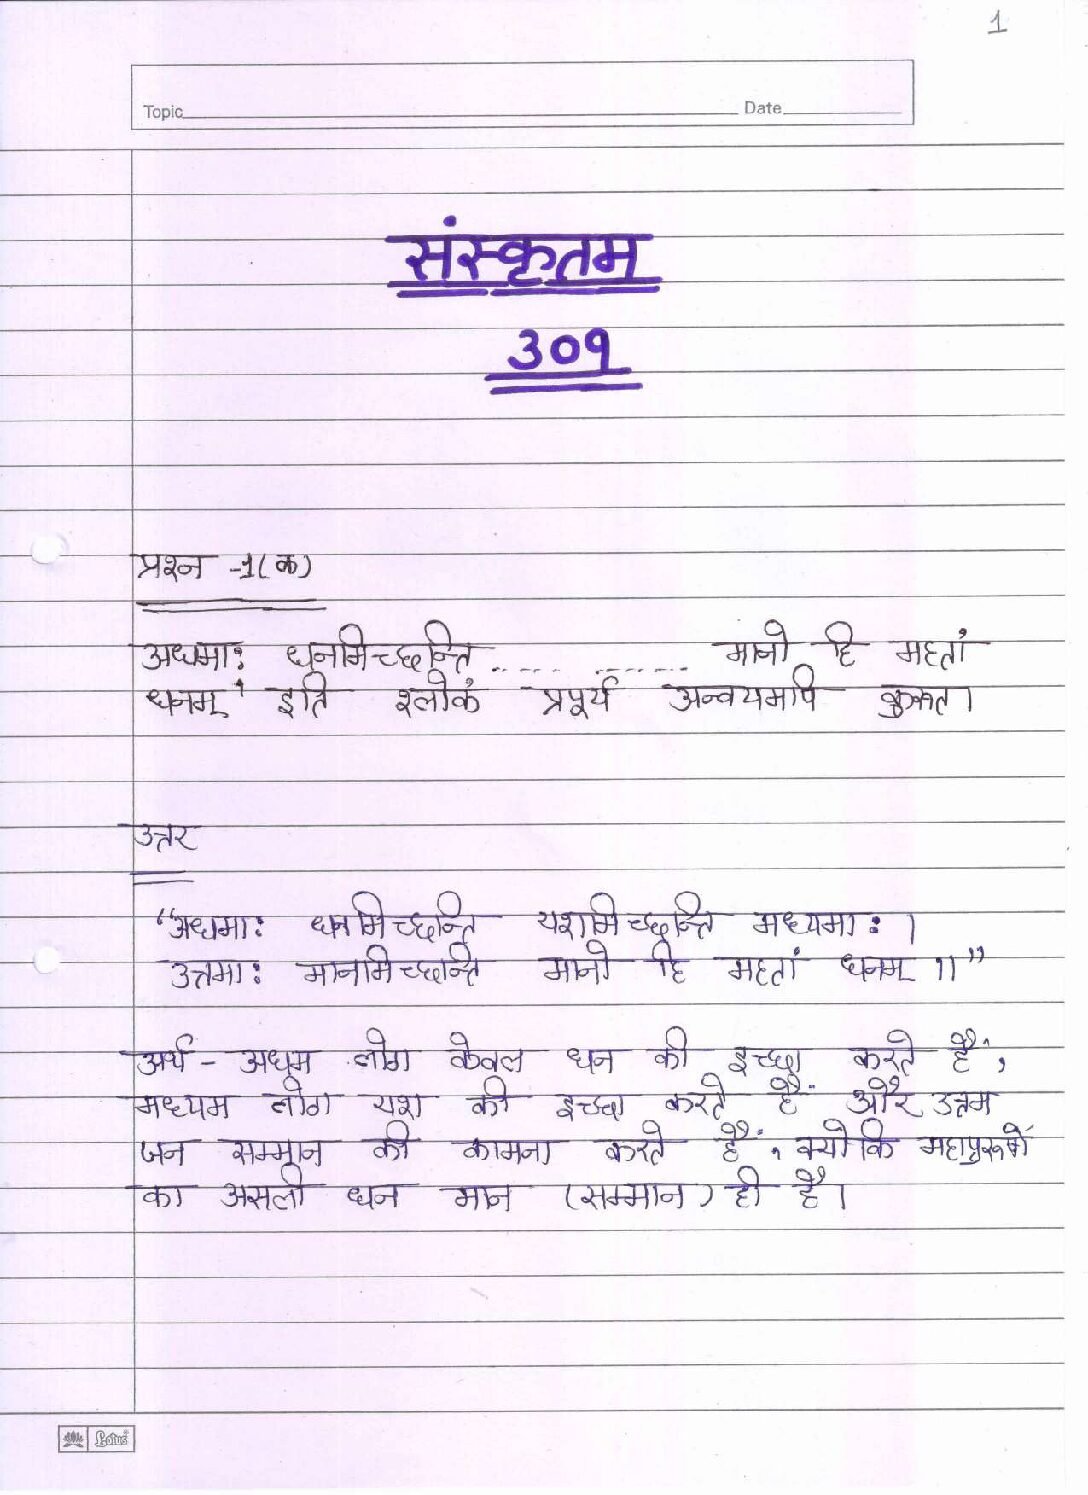 1
Topic Date
संस्कृतम
३०१
प्रश्न -1(क)
अधमाः धनमिच्छन्ति .... ...... मानो हि महतां
धनम् ' इति श्लोकं प्रपूर्य अन्वयमपि कुरुत।
उत्तर
“अधमाः धनमिच्छन्ति यशमिच्छन्ति मध्यमाः।
उत्तमाः मानमिच्छन्ति मानो हि महतां धनम् ॥”
अर्थ - अधम लोग केवल धन की इच्छा करते हैं,
मध्यम लोग यश की इच्छा करते हैं और उत्तम
जन सम्मान की कामना करते हैं, क्योकि महापुरूषों
का असली धन मान (सम्मान) ही है।
Lotus